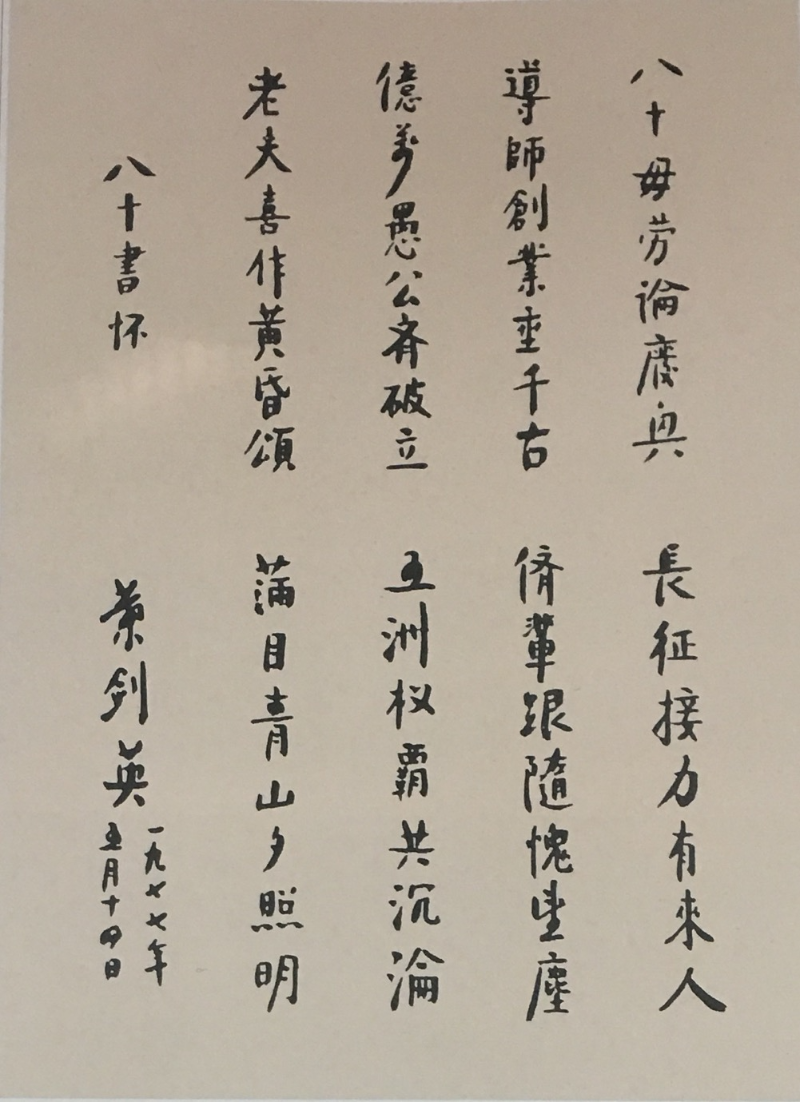 八十毋劳論廢興 長征接力有來人
導師創業垂千古 儕輩跟隨愧望塵
億萬愚公齊破立 五洲权覇共沉淪
老夫喜作黄昏頌 蒲目青山夕照明
八十書怀
葉剑英
一九七七年
五月十四日